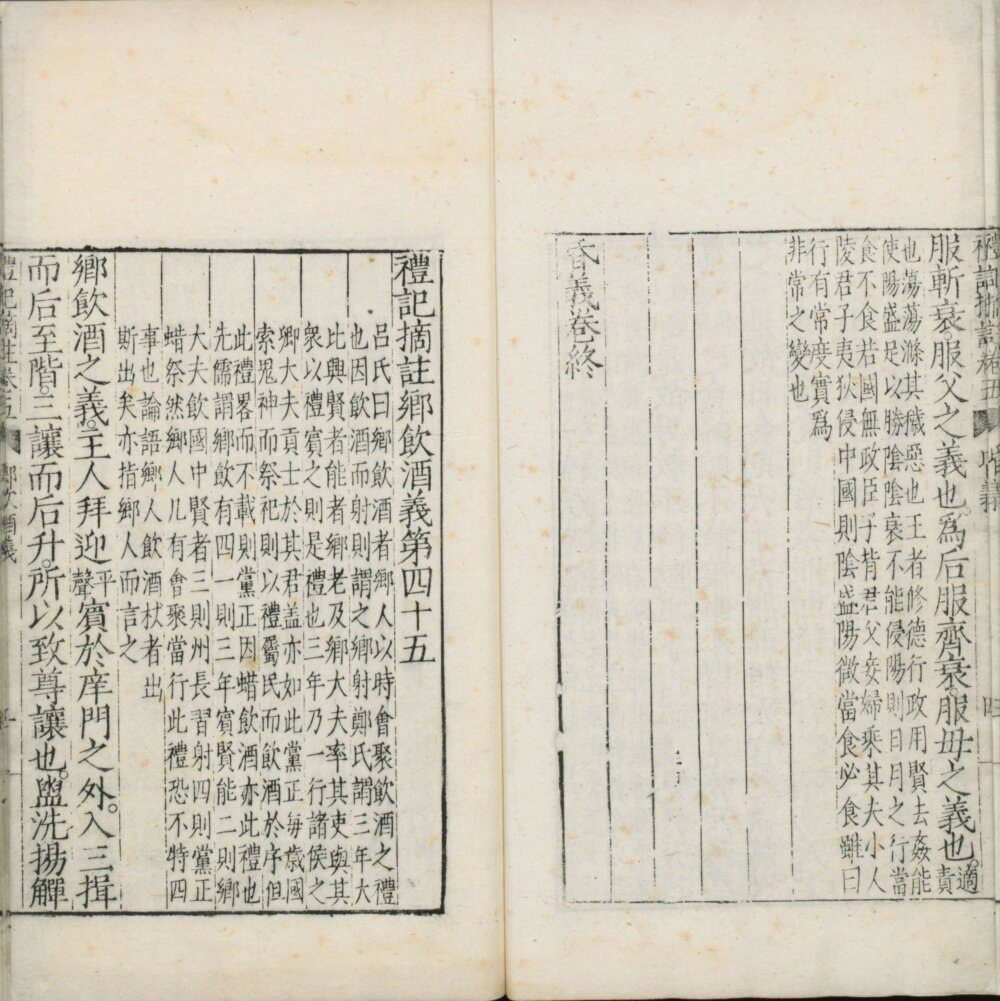 禮記摘註卷五 昏義 四
服斬衰服父之義也。為后服齊衰。服母之義也。適責
也蕩蕩滌其穢惡也王者修德行政用賢去姦能
使陽盛足以勝陰陰衰不能侵陽則日月之行當
食不食若國無政臣子背君父妾婦乘其夫小人
陵君子夷狄侵中國則陰盛陽微當食必食雖曰
行有常度實為
非常之變也
昏義卷終
禮記摘註鄉飲酒義第四十五
呂氏曰鄉飲酒者鄉人以時會聚飲酒之禮
也因飲酒而射則謂之鄉射鄭氏謂三年大
比興賢者能者鄉老及鄉大夫率其吏與其
衆以禮賓之則是禮也三年乃一行諸侯之
卿大夫貢士於其君盖亦如此黨正每歲國
索鬼神而祭祀則以禮屬民而飲酒於序但
此禮畧而不載則黨正因蜡飲酒亦此禮也
先儒謂鄉飲有四一則三年賓賢能二則鄉
大夫飲國中賢者三則州長習射四則黨正
蜡祭然鄉人凡有會聚當行此禮恐不特四
事也論語鄉人飲酒杖者出
斯出矣亦指鄉人而言之
鄉飲酒之義。主人拜迎平聲賓於庠門之外。入三揖
而后至階。三讓而后升。所以致尊讓也。盥洗揚觶
禮記摘註卷五 鄉飲酒義